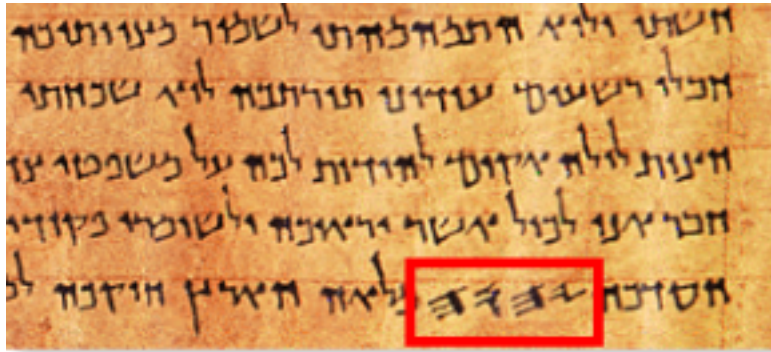 חשתי ולוא התמהמהתי לשמור מצוותיכה
חבלי רשעים עודוני תורתכה לוא שכחתי
חצות לילה אקום להודות לכה על משפטי
חבר אני לכול אשר יראוכה ולשומרי פקודי
חסדכה 𐤉𐤄𐤅𐤄 מלאה הארץ חוקכה